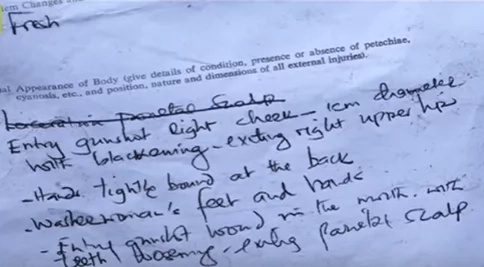 tem Changes and
Fresh
al Appearance of Body (give details of condition, presence or absence of petechiae,
cyanosis, etc., and position, nature and dimensions of all external injuries).
Laceration parietal scalp
Entry gunshot right cheek - 1cm diameter
with blackening - exiting right upper lip
- Hands tightly bound at the back
- Washerwoman's feet and hands
- Entry gunshot wound in the mouth with
teeth loosening - exiting parietal scalp